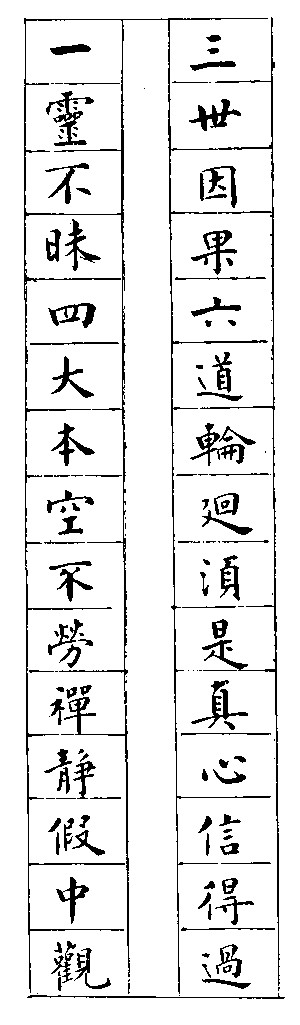 三世因果六道輪廻須是真心信得過
一靈不昧四大本空不勞禪靜假中觀